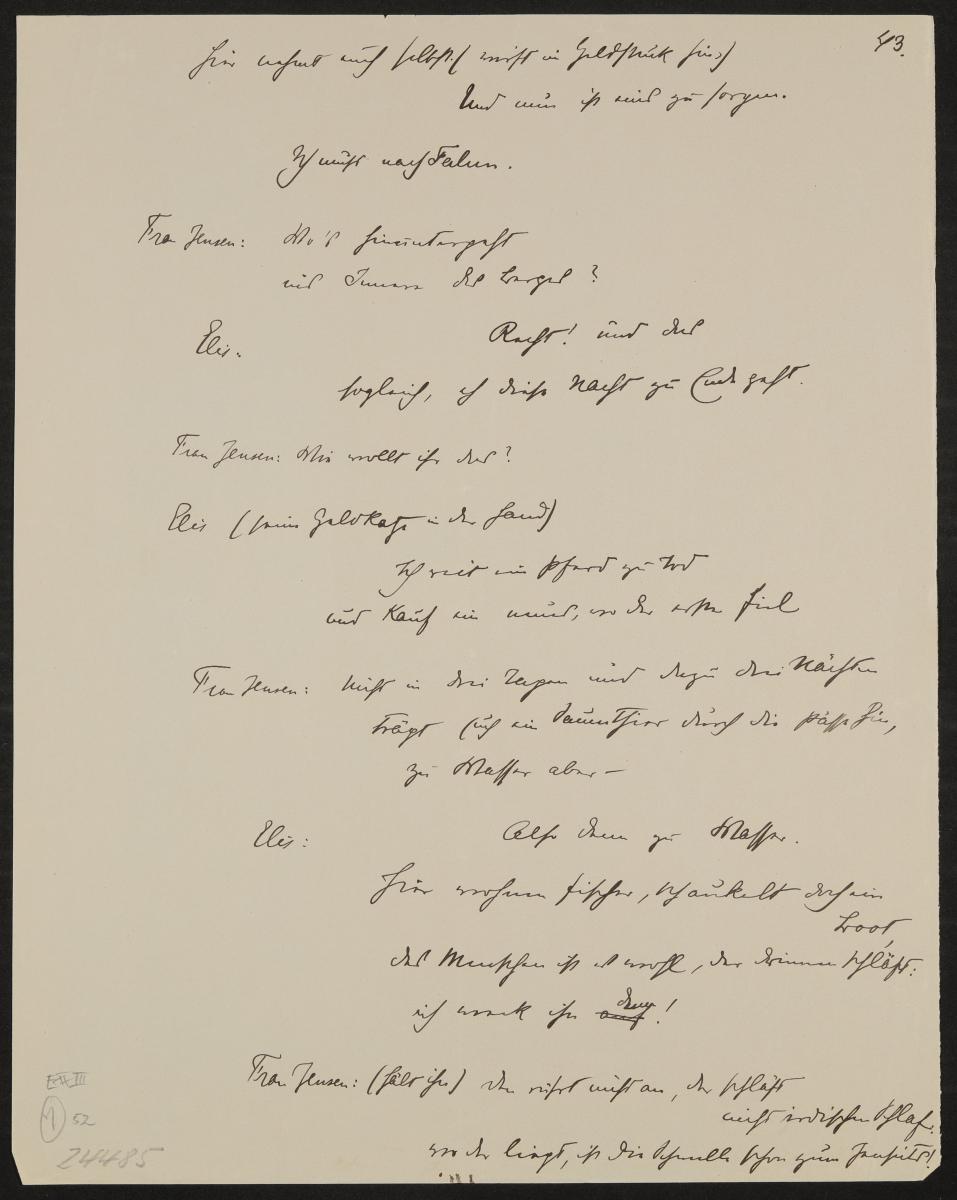 43.
hier nehmt euch selbst! (wirft ein Geldstück hin)
Und nun ist eins zu sorgen.
Ich muss nach Falun.
Frau Jensen: Wo's hinuntergeht
ins Innere des Berges?
Elis: Recht! und das
sogleich, eh diese Nacht zu Ende geht.
Frau Jensen: Wie wollt ihr das?
Elis (seine Geldkatze in der Hand)
Ich reit ein Pferd zu Tod
und kauf ein neues, wo der erste fiel
Frau Jensen: Nicht in drei Tagen und dazu drei Nächten
trägt Euch ein Saumthier durch die Pässe hin,
zu Wasser aber –
Elis: Also denn zu Wasser.
Hier wohnen Fischer, schaukelt doch ein
Boot,
des Menschen ist es wohl, der drinnen schläft:
ich weck ihn auf denn!
Frau Jensen: (hält ihn) Den rührt nicht an, der schläft
nicht irdischen Schlaf.
wo der liegt, ist die Schwelle schon zum Jenseits!
E II III
1 52
24485